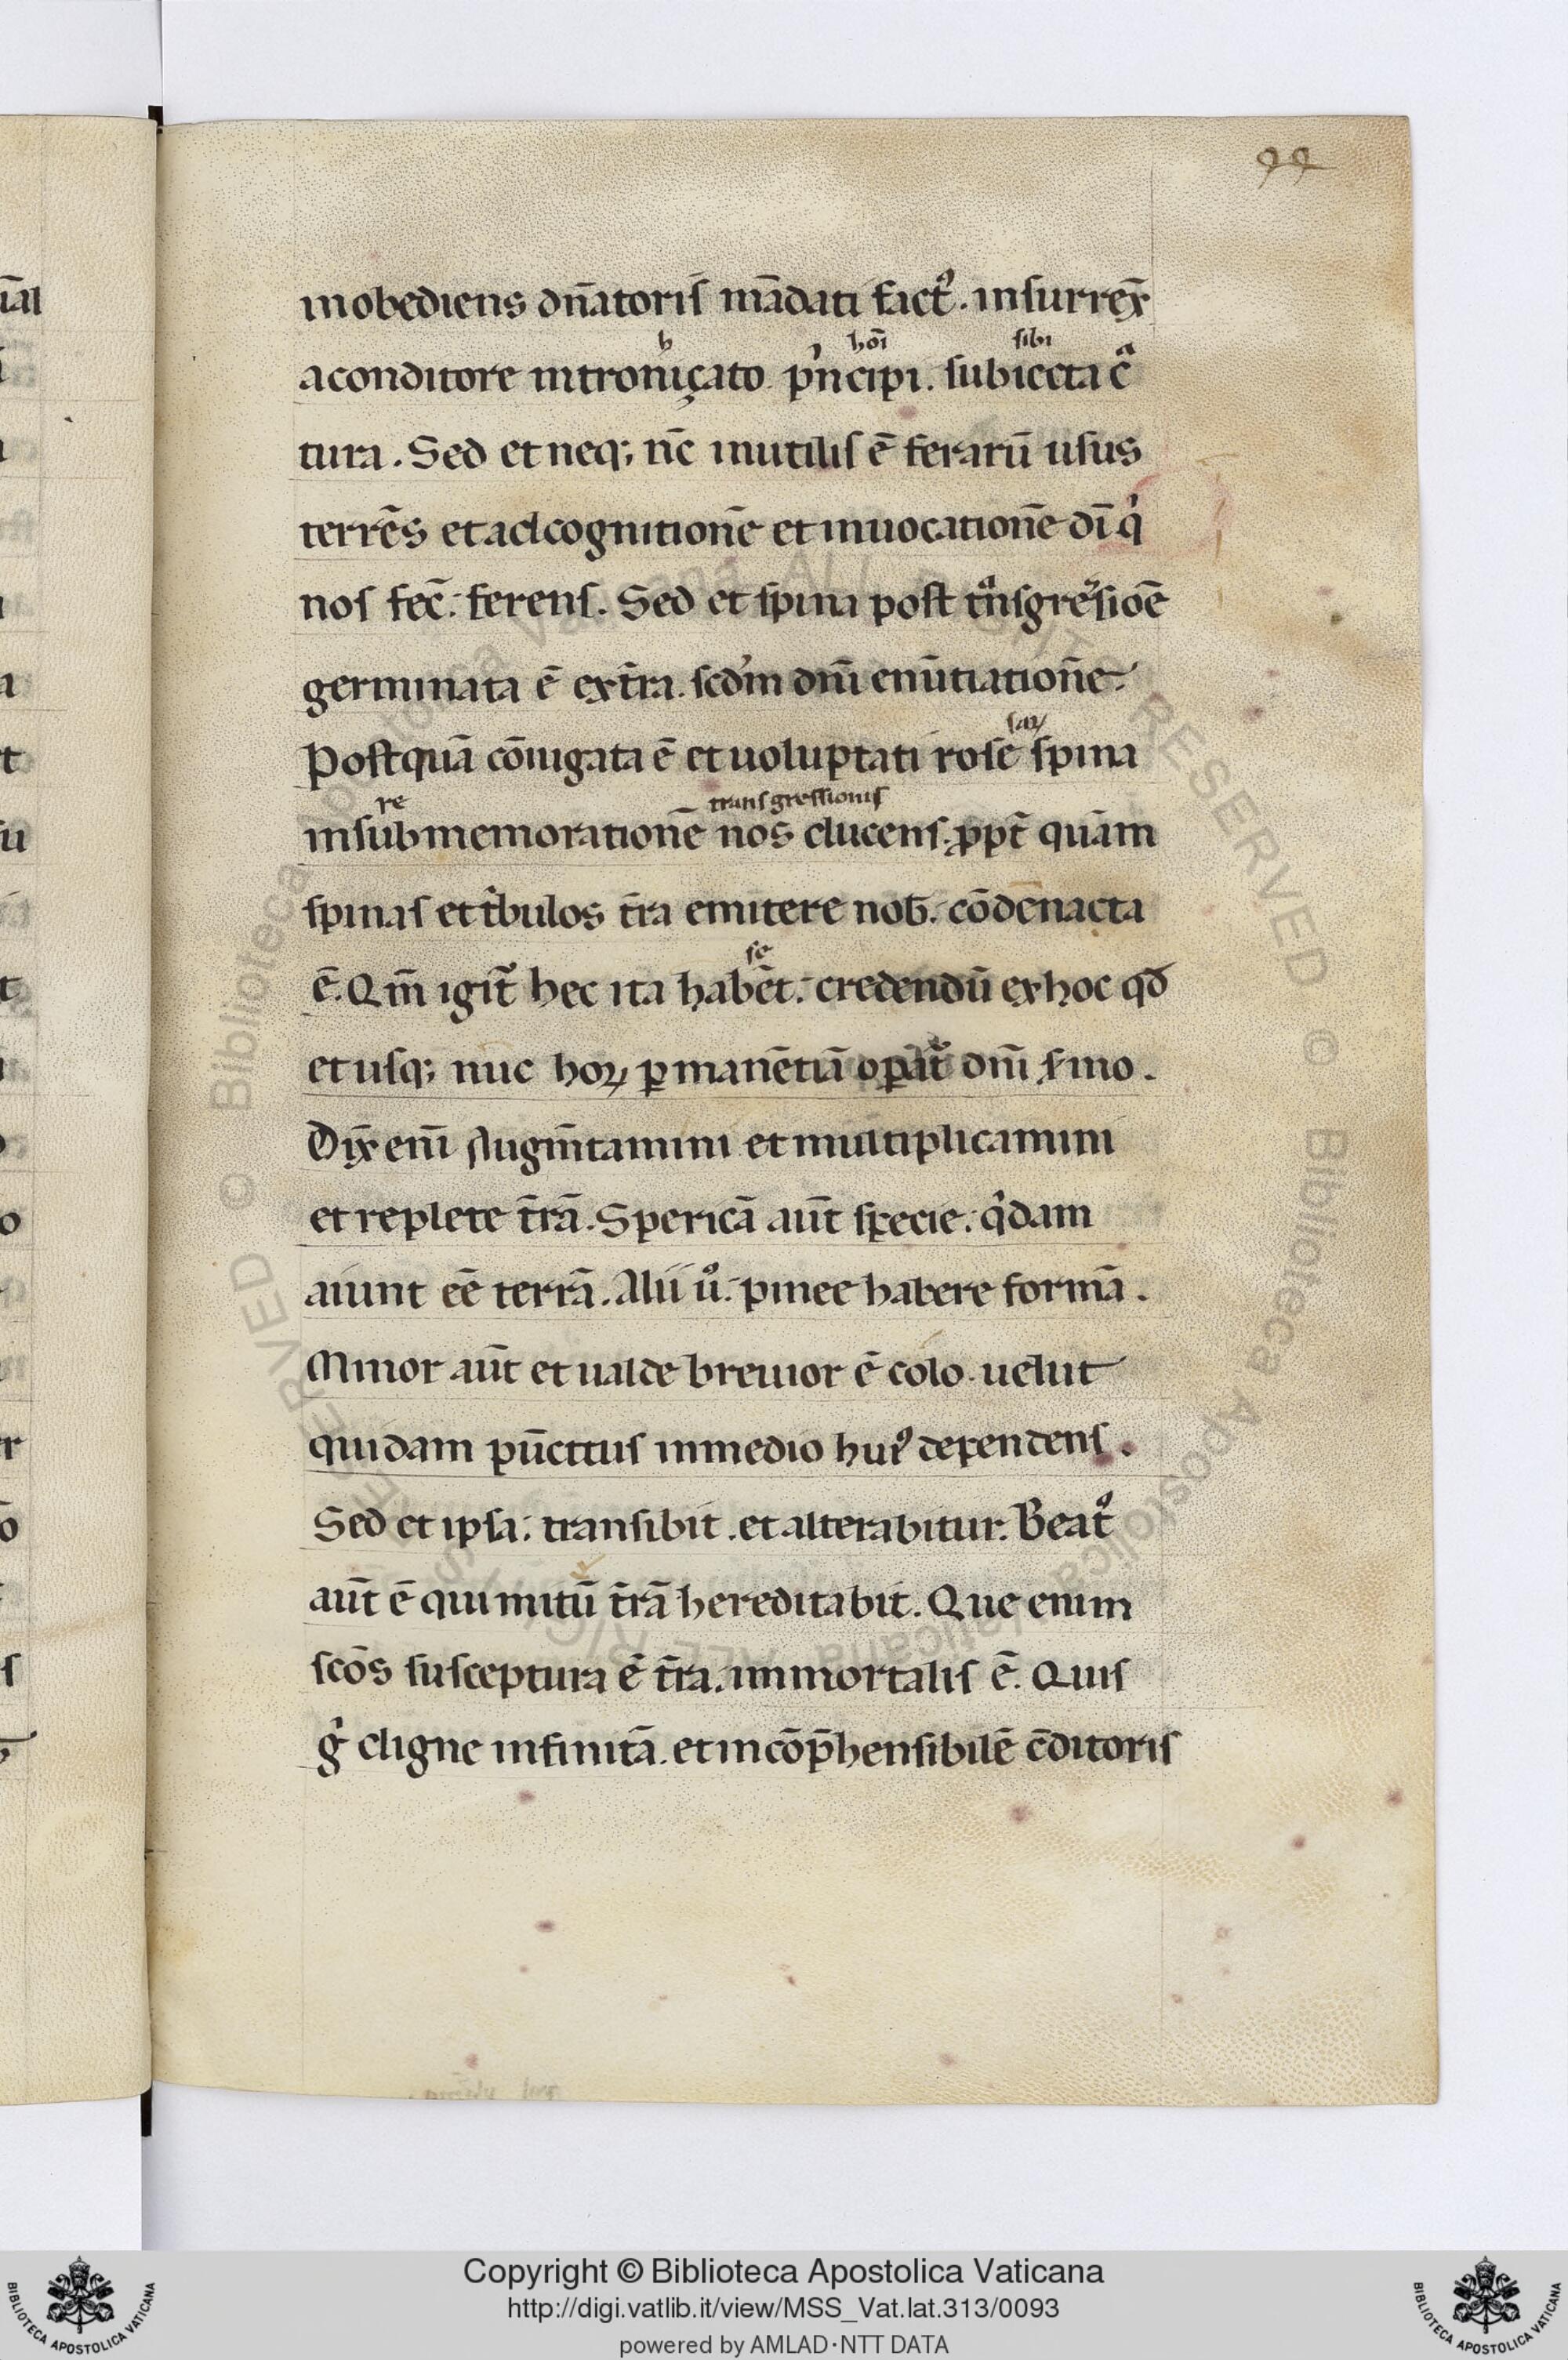 99
inobediens dn̄atoris mādati fact᾽. insurrex̄
h hōi sibi
aconditore intronịçato pͥncipi. subiecta cᵃ̄
tura. Sed et neq; nc̄ inutilis ē ferarū usus
terrēs et ad cognitionē et inuocationē dī qͥ
nos fec̄. ferens. Sed et spina post tᵃ̄nsgressioē
germinata ē ex tr̄a. scdm dn̄i enūtiationē.
Postquā cōiugata ē et uoluptati rose spina
re transgressionis
in submemorationē nos ducens. ꝓpt̄ quam
spinas et tͥbulos tr̄a emitere nob̄. cōdenacta
se
ē. Qm̄ igit᷑ hec ita habēt. credendū ex hoc qđ
et usq; nuc hoꝝ ꝑmanētiā oꝑāt᷑ dn̄i s̄mo.
Dix̄ enī Augm̄tamini et multiplicamini
et replete tr̄ā. Spericā aūt specie. qͥdam
aiunt eē terrā. Alii uͦ. pinee habere formā.
Minor aūt et ualde breuior ē cōlo. uelut
quidam pūcttus in medio hui᾽ dependens.
Sed et ipsa. transibit. et alterabitur. Beat᾽
aūt ē qui mitū tr̄ā hereditabit. Que enim
scōs susceptura ē tr̄a. immortalis ē. Quis
gͥ digne infinitā. et incōp̄hensibilē c̄ditoris
Copyright © Biblioteca Apostolica Vaticana
http://digi.vatlib.it/view/MSS_Vat.lat.313/0093
powered by AMLAD·NTT DATA